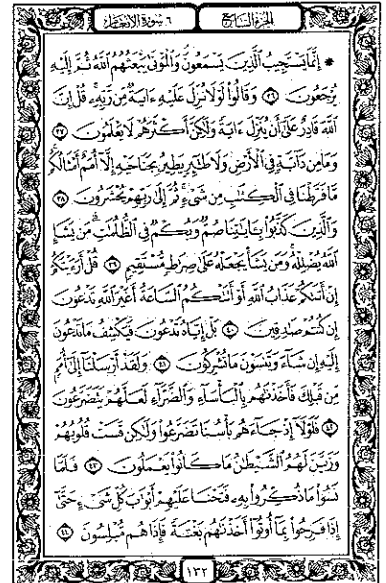 الجزء السابع ٦ سورة الأنعام
* إِنَّمَا يَسْتَجِيبُ الَّذِينَ يَسْمَعُونَ وَالْمَوْتَىٰ يَبْعَثُهُمُ اللَّهُ ثُمَّ إِلَيْهِ
يُرْجَعُونَ ٣٦ وَقَالُوا لَوْلَا نُزِّلَ عَلَيْهِ ءَايَةٌ مِّن رَّبِّهِۦ قُلْ إِنَّ
اللَّهَ قَادِرٌ عَلَىٰ أَن يُنَزِّلَ ءَايَةً وَلَٰكِنَّ أَكْثَرَهُمْ لَا يَعْلَمُونَ ٣٧
وَمَا مِن دَابَّةٍ فِي الْأَرْضِ وَلَا طَٰئِرٍ يَطِيرُ بِجَنَاحَيْهِ إِلَّا أُمَمٌ أَمْثَالُكُم
مَّا فَرَّطْنَا فِي الْكِتَٰبِ مِن شَيْءٍ ثُمَّ إِلَىٰ رَبِّهِمْ يُحْشَرُونَ ٣٨
وَالَّذِينَ كَذَّبُوا بِـَٔايَٰتِنَا صُمٌّ وَبُكْمٌ فِي الظُّلُمَٰتِ مَن يَشَإِ
اللَّهُ يُضْلِلْهُ وَمَن يَشَأْ يَجْعَلْهُ عَلَىٰ صِرَٰطٍ مُّسْتَقِيمٍ ٣٩ قُلْ أَرَءَيْتَكُمْ
إِنْ أَتَىٰكُمْ عَذَابُ اللَّهِ أَوْ أَتَتْكُمُ السَّاعَةُ أَغَيْرَ اللَّهِ تَدْعُونَ
إِن كُنتُمْ صَٰدِقِينَ ٤٠ بَلْ إِيَّاهُ تَدْعُونَ فَيَكْشِفُ مَا تَدْعُونَ
إِلَيْهِ إِن شَاءَ وَتَنسَوْنَ مَا تُشْرِكُونَ ٤١ وَلَقَدْ أَرْسَلْنَا إِلَىٰ أُمَمٍ
مِّن قَبْلِكَ فَأَخَذْنَٰهُم بِالْبَأْسَاءِ وَالضَّرَّاءِ لَعَلَّهُمْ يَتَضَرَّعُونَ
٤٢ فَلَوْلَا إِذْ جَاءَهُم بَأْسُنَا تَضَرَّعُوا وَلَٰكِن قَسَتْ قُلُوبُهُمْ
وَزَيَّنَ لَهُمُ الشَّيْطَٰنُ مَا كَانُوا يَعْمَلُونَ ٤٣ فَلَمَّا
نَسُوا مَا ذُكِّرُوا بِهِۦ فَتَحْنَا عَلَيْهِمْ أَبْوَٰبَ كُلِّ شَيْءٍ حَتَّىٰ
إِذَا فَرِحُوا بِمَا أُوتُوا أَخَذْنَٰهُم بَغْتَةً فَإِذَا هُم مُّبْلِسُونَ ٤٤
١٣٢